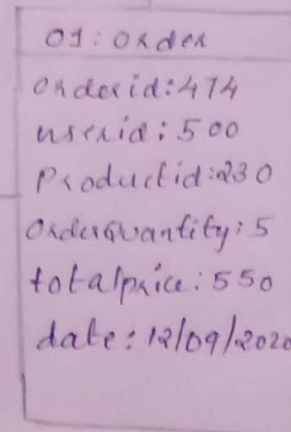 O1: Order
Orderid:474
userid:500
Productid:230
OrderQuantity:5
totalprice:550
date:12/09/2020